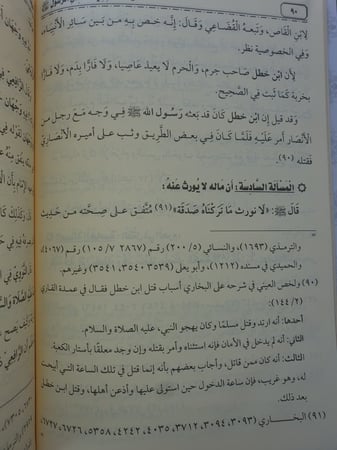 ٩٠
لابن القاص، وتبعه القضاعي وقال: إنه خص به من بين سائر الأنبياء
وفي الخصوصية نظر.
لأن ابن خطل صاحب جرم، والحرم لا يعيذ عاصيا، ولا فارًا بدم، ولا فارًا
بخربة كما ثبت في الصحيح.
وقد قيل إن ابن خطل كان قد بعثه رسول الله ﷺ في وجه مع رجل من
الأنصار أمر عليه فلما كان في بعض الطريق وثب على أميره الأنصاري
فقتله (٩٠).
المسألة السادسة: أن ماله لا يورث عنه:
قال ﷺ: «لا نورث ما تركناه صدقة» (٩١) متفق على صحته من حديث
والترمذي (١٦٩٣)، والنسائي (٢٠٠/٥) رقم (٢٨٦٧) ١٠٥/٧ (٤٠٦٧)،
والحميدي في مسنده (١٢١٢)، وأبو يعلى (٣٥٣٩، ٣٥٤٠، ٣٥٤١) وغيرهم.
(٩٠) ولخص العيني في شرحه على البخاري أسباب قتل ابن خطل فقال في عمدة القاري
(١٤٤/٢):
أحدها: أنه ارتد وقتل مسلمًا وكان يهجو النبي، عليه الصلاة والسلام.
الثاني: أنه لم يدخل في الأمان فإنه استثناه وأمر بقتله وإن وجد معلقًا بأستار الكعبة.
الثالث: أنه كان ممن قاتل، وأجاب بعضهم بأنه إنما قتل في تلك الساعة التي أبيحت
له، وهو غريب، فإن ساعة الدخول حين استولى عليها وأذعن أهلها، وقتل ابن خطل
بعد ذلك.
(٩١) البخاري (٣٠٩٣، ٣٠٩٤، ٣٧١٢، ٤٠٣٥، ٤٢٤٢، ٥٣٥٨، ٦٧٢٦، ٦٧٢٧،